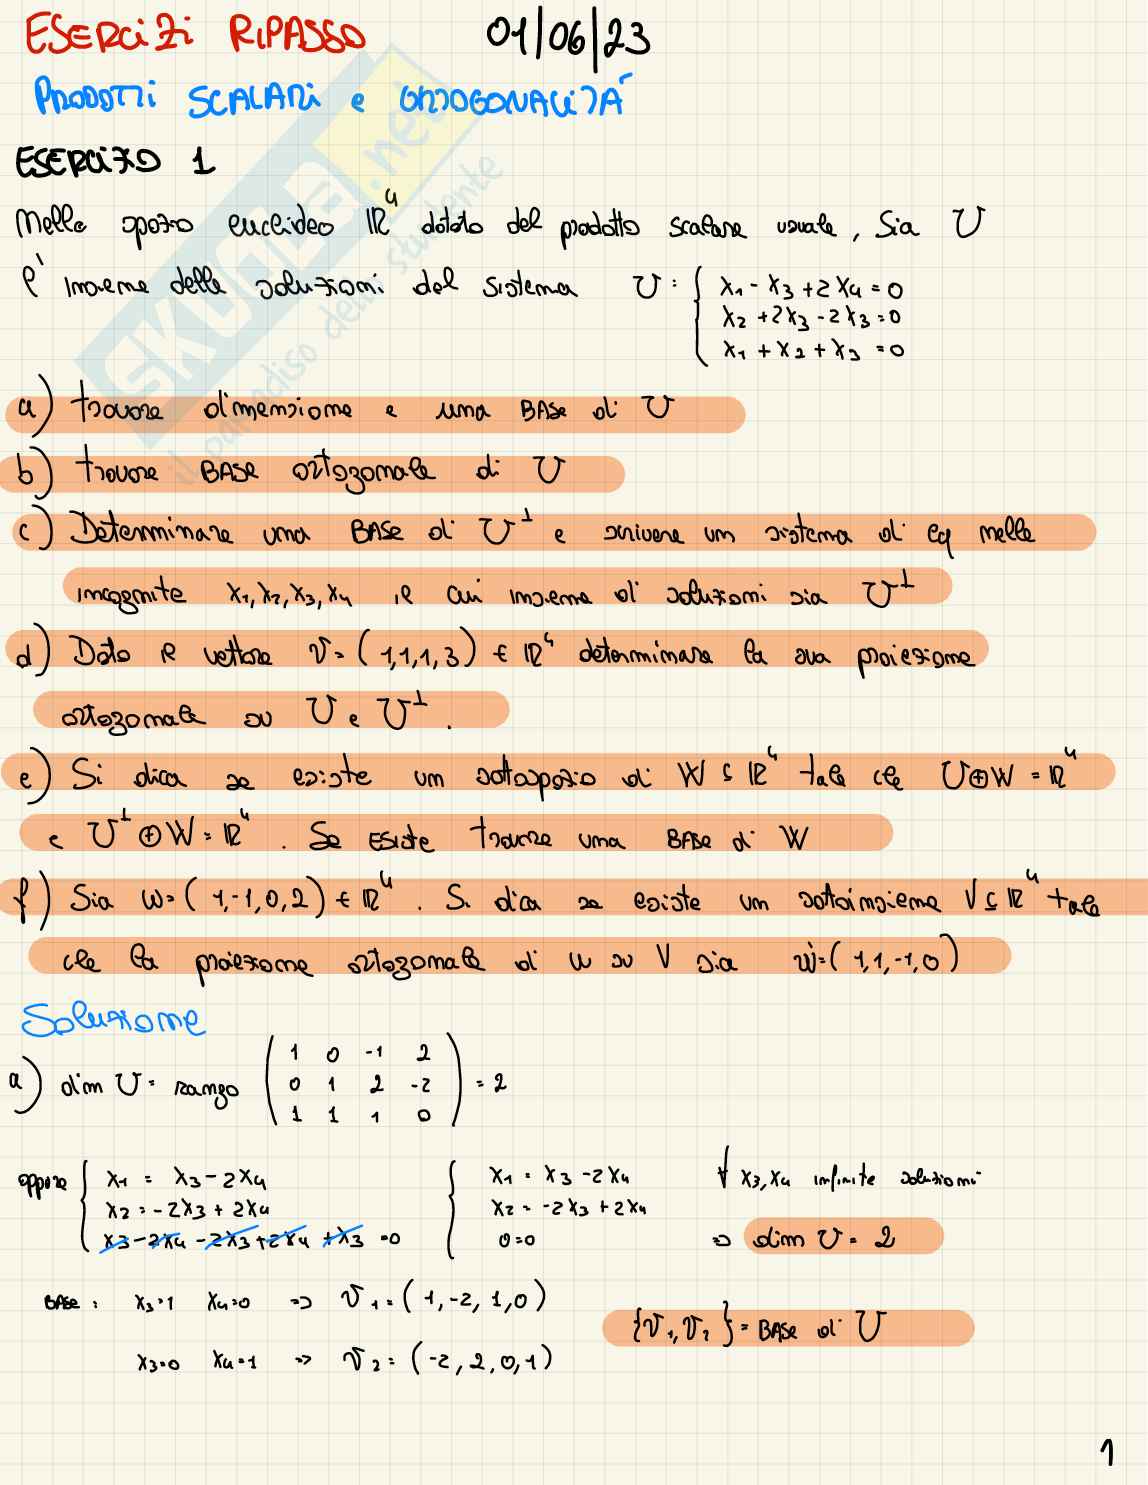 ESERCIZI RIPASSO 01/06/23
PRODOTTI SCALARI e ORTOGONALITÁ
ESERCIZIO 1
Nello spazio euclideo ℝ⁴ dotato del prodotto scalare usuale, sia U
l'insieme delle soluzioni del sistema U: { x₁ - x₃ + 2x₄ = 0
x₂ + 2x₃ - 2x₃ = 0
x₁ + x₂ + x₃ = 0
a) trovare dimensione e una BASE di U
b) trovare BASE ortogonale di U
c) Determinare una BASE di U^⊥ e scrivere un sistema di eq nelle
incognite x₁, x₂, x₃, x₄ il cui insieme di soluzioni sia U^⊥
d) Dato il vettore v = (1,1,1,3) ∈ ℝ⁴ determinare la sua proiezione
ortogonale su U e U^⊥.
e) Si dica se esiste un sottospazio di W ⊆ ℝ⁴ tale che U⊕W = ℝ⁴
e U^⊥ ⊕ W = ℝ⁴. Se esiste trovare una BASE di W
f) Sia w = (1,-1,0,2) ∈ ℝ⁴. Si dica se esiste un sottoinsieme V ⊆ ℝ⁴ tale
che la proiezione ortogonale di w su V sia ẇ = (1,1,-1,0)
Soluzione
a) dim U = rango ( 1 0 -1 2
0 1 2 -2
1 1 1 0 ) = 2
oppure { x₁ = x₃ - 2x₄ { x₁ = x₃ - 2x₄ ∀ x₃, x₄ infinite soluzioni
x₂ = -2x₃ + 2x₄ x₂ = -2x₃ + 2x₄
x₃ - 2x₄ - 2x₃ + 2x₄ + x₃ = 0 0 = 0 ⇒ dim U = 2
BASE: x₃ = 1 x₄ = 0 ⇒ v₁ = (1,-2,1,0)
{v₁, v₂} = BASE di U
x₃ = 0 x₄ = 1 ⇒ v₂ = (-2,2,0,1)
1
SKUOLA.net
il paradiso dello studente